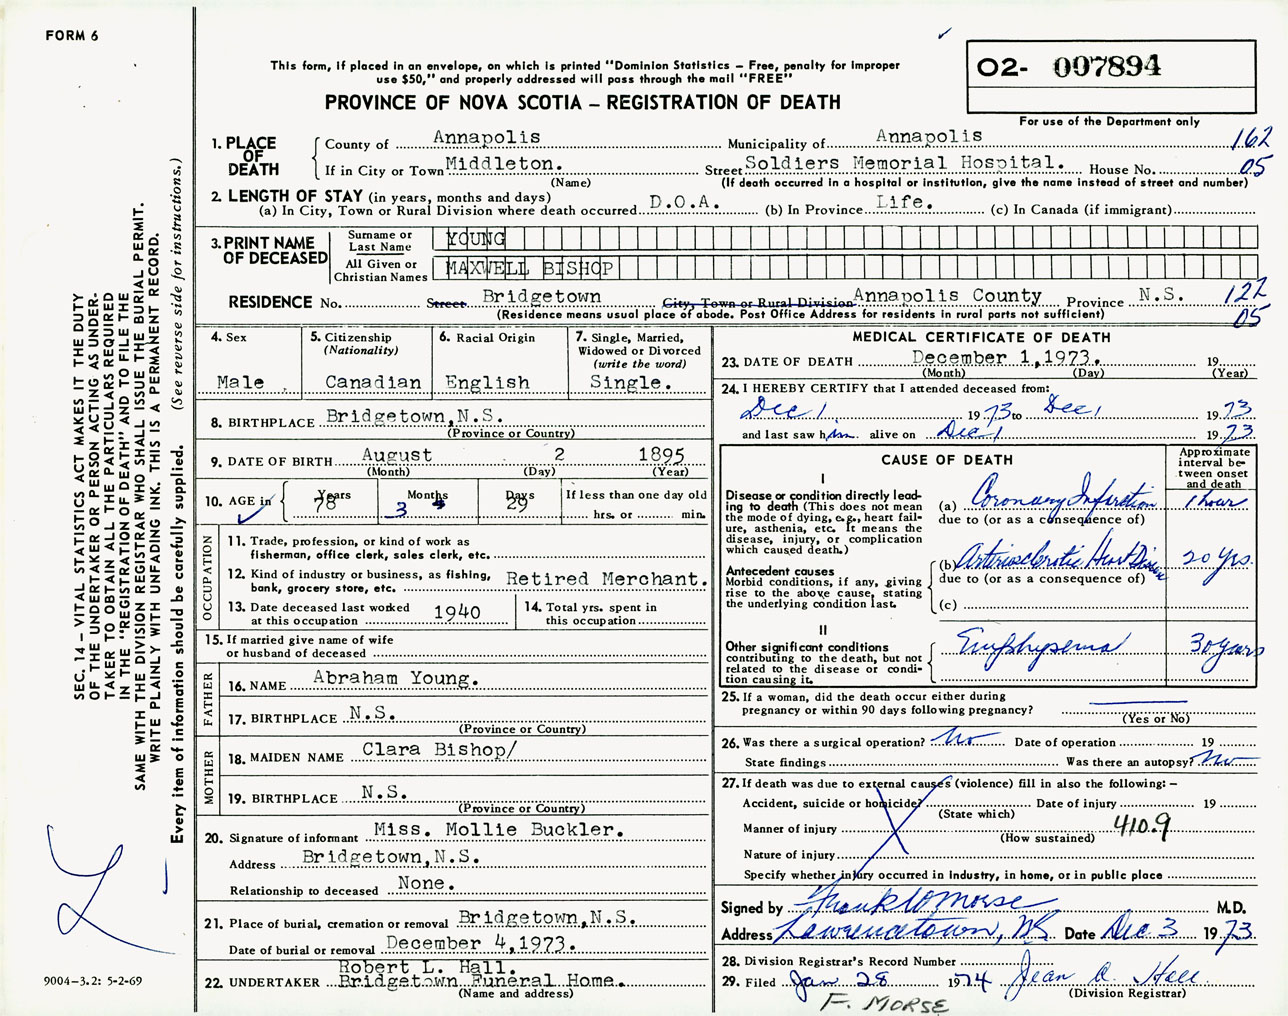 FORM 6
This form, if placed in an envelope, on which is printed "Dominion Statistics – Free, penalty for improper
use $50," and properly addressed will pass through the mail "FREE"
PROVINCE OF NOVA SCOTIA – REGISTRATION OF DEATH
O2- 007894
For use of the Department only
SEC. 14 – VITAL STATISTICS ACT MAKES IT THE DUTY
OF THE UNDERTAKER OR PERSON ACTING AS UNDER-
TAKER TO OBTAIN ALL THE PARTICULARS REQUIRED
IN THE "REGISTRATION OF DEATH" AND TO FILE THE
SAME WITH THE DIVISION REGISTRAR WHO SHALL ISSUE THE BURIAL PERMIT.
WRITE PLAINLY WITH UNFADING INK. THIS IS A PERMANENT RECORD.
Every item of information should be carefully supplied. (See reverse side for instructions.)
1. PLACE OF DEATH
County of Annapolis Municipality of Annapolis 162
If in City or Town Middleton. Street Soldiers Memorial Hospital. House No. 05
(Name) (If death occurred in a hospital or institution, give the name instead of street and number)
2. LENGTH OF STAY (in years, months and days)
(a) In City, Town or Rural Division where death occurred D.O.A. (b) In Province Life. (c) In Canada (if immigrant)
3. PRINT NAME OF DECEASED
Surname or Last Name YOUNG
All Given or Christian Names MAXWELL BISHOP
RESIDENCE No. Street Bridgetown City, Town or Rural Division Annapolis County Province N.S. 122
(Residence means usual place of abode. Post Office Address for residents in rural parts not sufficient) 05
4. Sex
Male
5. Citizenship
(Nationality)
Canadian
6. Racial Origin
English
7. Single, Married,
Widowed or Divorced
(write the word)
Single.
8. BIRTHPLACE Bridgetown,N.S.
(Province or Country)
9. DATE OF BIRTH August 2 1895
(Month) (Day) (Year)
10. AGE in Years 78 Months 3 Days 29 If less than one day old
hrs. or min.
OCCUPATION
11. Trade, profession, or kind of work as
fisherman, office clerk, sales clerk, etc.
12. Kind of industry or business, as fishing,
bank, grocery store, etc. Retired Merchant.
13. Date deceased last worked
at this occupation 1940
14. Total yrs. spent in
this occupation
15. If married give name of wife
or husband of deceased
FATHER
16. NAME Abraham Young.
17. BIRTHPLACE N.S.
(Province or Country)
MOTHER
18. MAIDEN NAME Clara Bishop/
19. BIRTHPLACE N.S.
(Province or Country)
20. Signature of informant Miss. Mollie Buckler.
Address Bridgetown,N.S.
Relationship to deceased None.
21. Place of burial, cremation or removal Bridgetown,N.S.
Date of burial or removal December 4,1973.
Robert L. Hall.
22. UNDERTAKER Bridgetown Funeral Home.
(Name and address)
MEDICAL CERTIFICATE OF DEATH
23. DATE OF DEATH December 1,1973. 19
(Month) (Day) (Year)
24. I HEREBY CERTIFY that I attended deceased from:
Dec 1 1973 to Dec 1 1973
and last saw him alive on Dec 1 1973
CAUSE OF DEATH
Approximate
interval be-
tween onset
and death
I
Disease or condition directly lead-
ing to death (This does not mean
the mode of dying, e.g., heart fail-
ure, asthenia, etc. It means the
disease, injury, or complication
which caused death.)
(a) Coronary Infarction 1 hour
due to (or as a consequence of)
Antecedent causes
Morbid conditions, if any, giving
rise to the above cause, stating
the underlying condition last.
(b) Arteriosclerotic Heart Disease 20 yrs.
due to (or as a consequence of)
(c)
II
Other significant conditions
contributing to the death, but not
related to the disease or condi-
tion causing it.
Emphysema 30 years
25. If a woman, did the death occur either during
pregnancy or within 90 days following pregnancy?
(Yes or No)
26. Was there a surgical operation? No Date of operation 19
State findings Was there an autopsy? No
27. If death was due to external causes (violence) fill in also the following: –
Accident, suicide or homicide? Date of injury 19
(State which)
Manner of injury 410.9
(How sustained)
Nature of injury
Specify whether injury occurred in industry, in home, or in public place
Signed by Frank W Morse M.D.
Address Lawrencetown, NS Date Dec 3 1973
28. Division Registrar's Record Number
29. Filed Jan 28 1974 Jean A. Hall
(Division Registrar)
F. MORSE
9004–3.2: 5-2-69